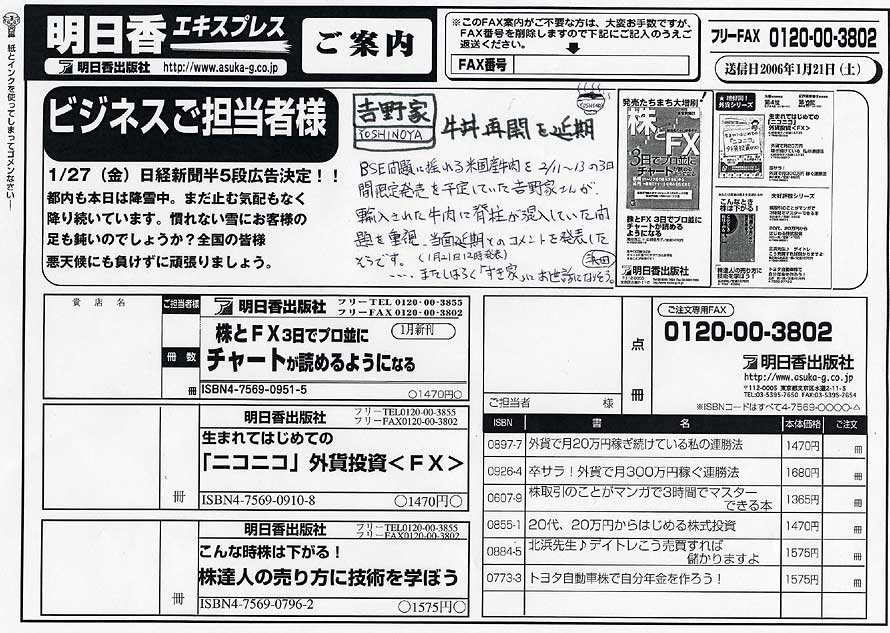 紙とインクを使ってしまってゴメンなさい!
明日香エキスプレス
明日香出版社 http://www.asuka-g.co.jp
ご案内
※このFAX案内がご不要な方は、大変お手数ですが、
FAX番号を削除しますので下記にご記入のうえご
返送ください。
FAX番号
フリーFAX 0120-00-3802
送信日2006年1月21日(土)
ビジネスご担当者様
1/27(金)日経新聞半5段広告決定!!
都内も本日は降雪中。まだ止む気配もなく
降り続いています。慣れない雪にお客様の
足も鈍いのでしょうか?全国の皆様
悪天候にも負けずに頑張りましょう。
吉野家
YOSHINOYA
牛丼再開を延期
BSE問題に揺れる米国産牛肉を2/11〜13の3日
間限定発売を予定していた吉野家さんが、
輸入された牛肉に脊柱が混入していた問
題を重視、当面延期とのコメントを発表した
そうです。(1月21日12時発表)
・・・・またしばらく「すき家」にお世話になろう。
発売たちまち大増刷!
株とFX
3日でプロ並に
チャートが読める
ようになる
株とFX 3日でプロ並に
チャートが読める
ようになる
明日香出版社
外貨シリーズ
生まれてはじめての
「ニコニコ」
外貨投資
こんなとき
株は下がる!
株達人の売り方に
技術を学ぼう!
大好評株シリーズ
貴店名
ご担当者様
冊数
冊
明日香出版社 フリーTEL 0120-00-3855
フリーFAX 0120-00-3802
株とFX3日でプロ並に
1月新刊
チャートが読めるようになる
ISBN4-7569-0951-5 ○1470円○
明日香出版社 フリーTEL0120-00-3855
フリーFAX0120-00-3802
生まれてはじめての
「ニコニコ」外貨投資<FX>
冊
ISBN4-7569-0910-8 ○1470円○
明日香出版社 フリーTEL0120-00-3855
フリーFAX0120-00-3802
こんな時株は下がる!
株達人の売り方に技術を学ぼう
冊
ISBN4-7569-0796-2 ○1575円○
点
冊
ご担当者 様
ご注文専用FAX
0120-00-3802
明日香出版社
http://www.asuka-g.co.jp
〒112-0005 東京都文京区水道2-11-5
TEL:03-5395-7650 FAX:03-5395-7654
※ISBNコードはすべて4-7569-○○○○-△
ISBN 書名 本体価格 ご注文
0897-7 外貨で月20万円稼ぎ続けている私の連勝法 1470円 冊
0926-4 卒サラ!外貨で月300万円稼ぐ連勝法 1680円 冊
0607-9 株取引のことがマンガで3時間でマスター
できる本 1365円 冊
0855-1 20代、20万円からはじめる株式投資 1470円 冊
0884-5 北浜先生♪デイトレこう売買すれば
儲かりますよ 1575円 冊
0773-3 トヨタ自動車株で自分年金を作ろう! 1575円 冊